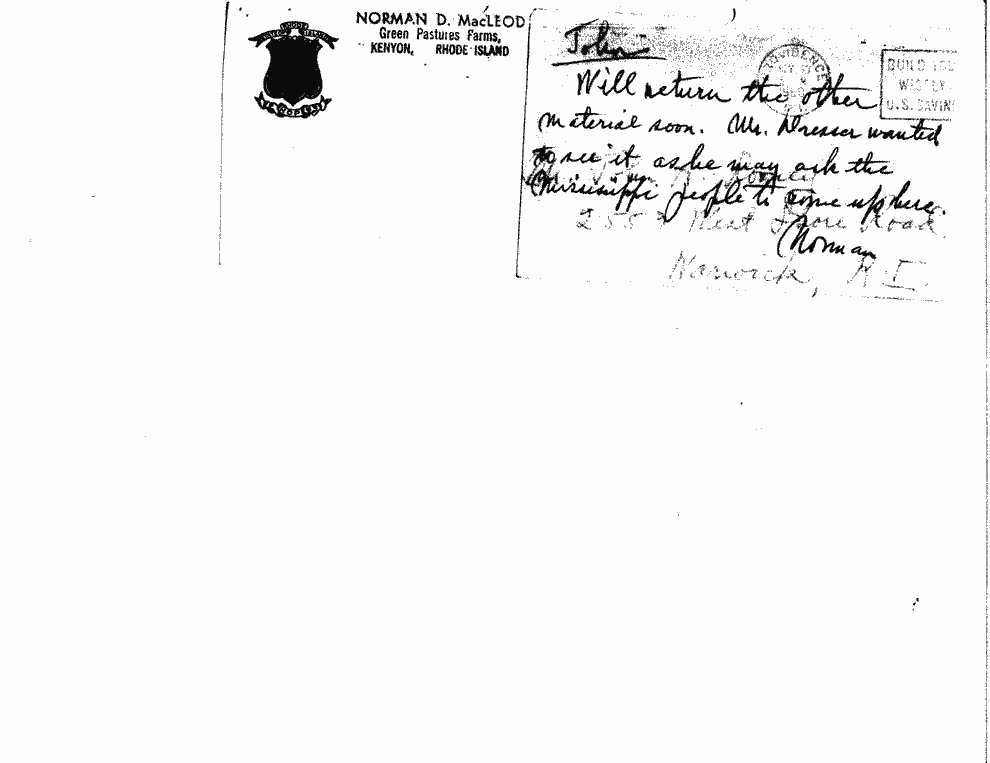 NORMAN D. MacLEOD
Green Pastures Farms,
KENYON, RHODE ISLAND
PROVIDENCE
BUILD
WISELY
U.S. SAVIN
John
Will return the other
material soon. Mr. Dresser wanted
to see it as he may ask the
Mississippi people to come up here.
Norman
West Shore Road
Warwick, R I.